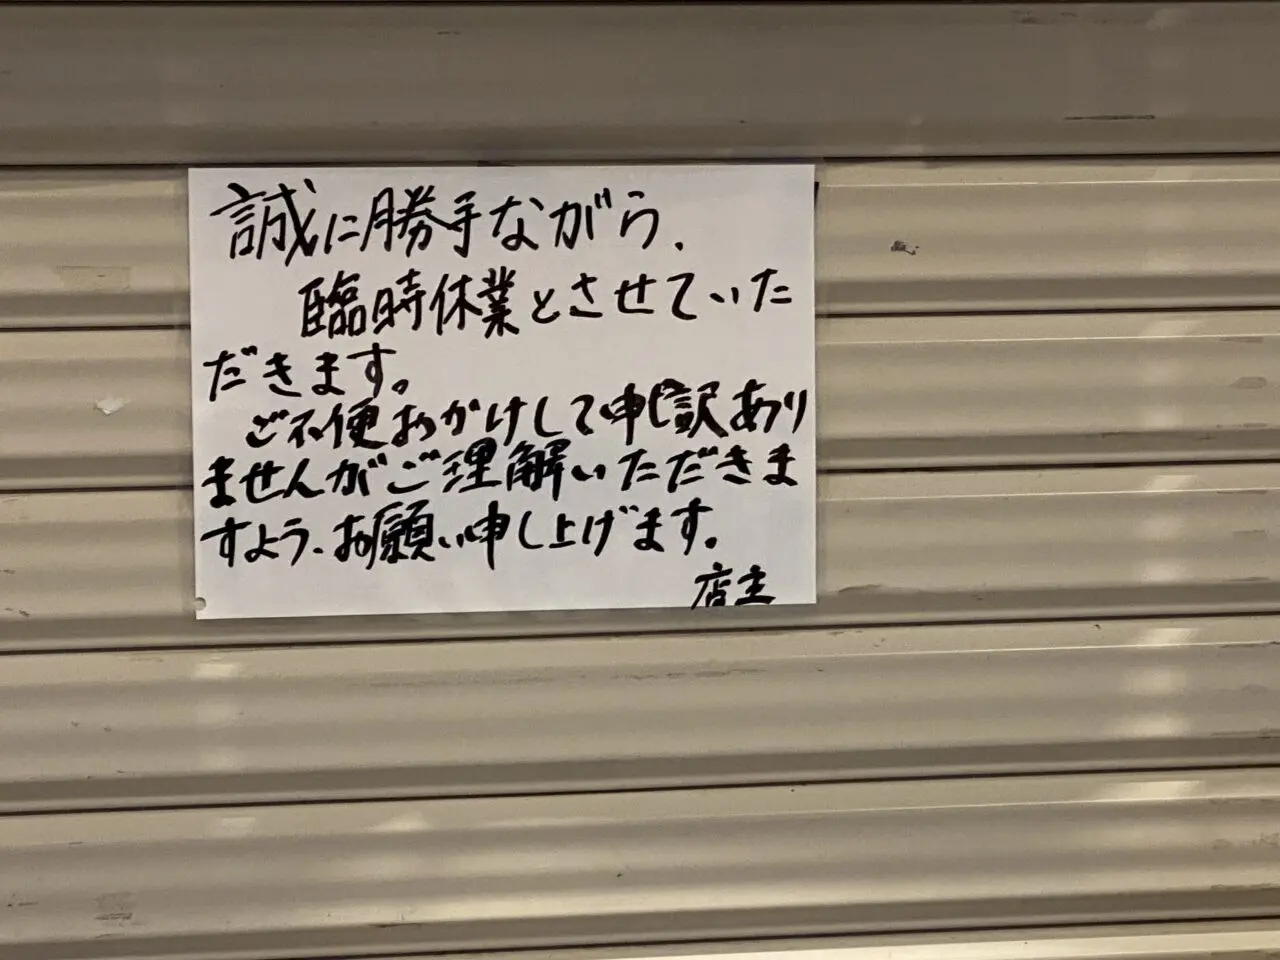 誠に勝手ながら、
臨時休業とさせていた
だきます。
ご不便おかけして申し訳あり
ませんがご理解いただきま
すよう、お願い申し上げます。
店主